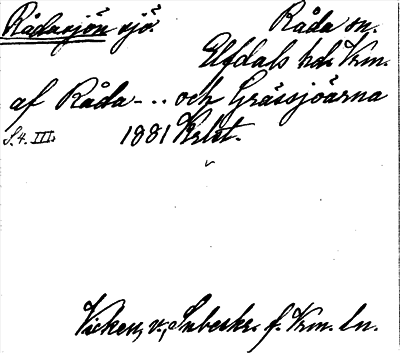 Rådasjön sjö. Råda sn.
Elfdals hd. Vrm.
af Råda - .. och Grässjöarna
S. 4. III. 1881 Krlst.
Vicken, v., Inbeskr. f. Vrm. ln.